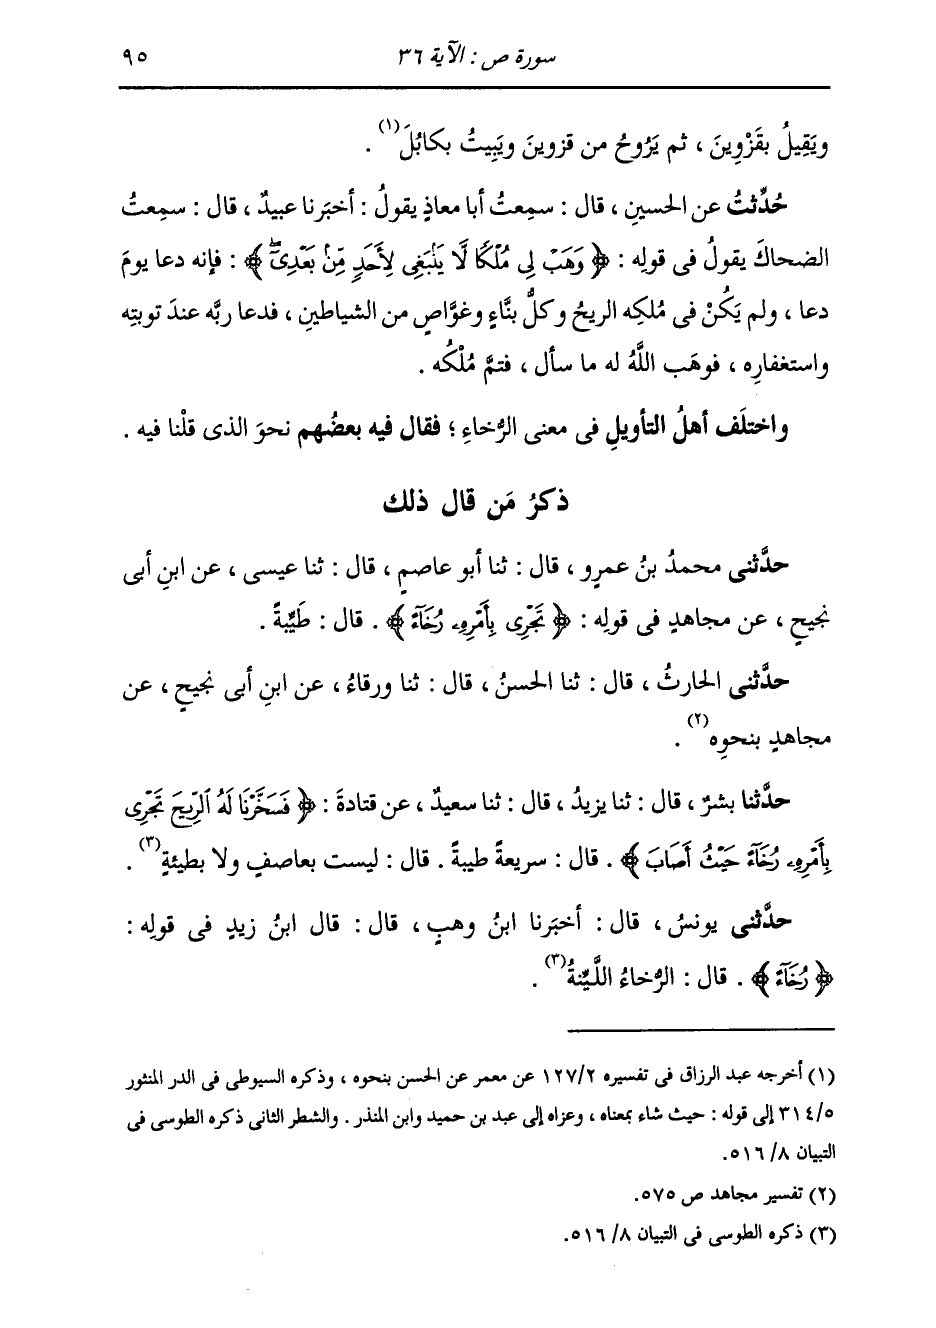 سورة ص : الآية ٣٦
٩٥
ويَقِيلُ بقَزْوِينَ ، ثم يَرُوحُ من قزوينَ ويَبِيتُ بكابُلَ(١) .
حُدِّثتُ عن الحسينِ ، قال : سمِعتُ أبا معاذٍ يقولُ : أخبَرنا عبيدٌ ، قال : سمِعتُ
الضحاكَ يقولُ فى قولِه : ﴿ وَهَبْ لِى مُلْكًا لَّا يَنۢبَغِى لِأَحَدٍ مِّنۢ بَعْدِىٓ ﴾ : فإنه دعا يومَ
دعا ، ولم يَكُنْ فى مُلكِه الريحُ وكلُّ بنَّاءٍ وغوَّاصٍ من الشياطينِ ، فدعا ربَّه عندَ توبتِه
واستغفارِه ، فوهَب اللَّهُ له ما سأل ، فتمَّ مُلْكُه .
واختلَف أهلُ التأويلِ فى معنى الرُّخاءِ ؛ فقال فيه بعضُهم نحوَ الذى قلْنا فيه .
ذكرُ مَن قال ذلك
حدَّثنى محمدُ بنُ عمرٍو ، قال : ثنا أبو عاصمٍ ، قال : ثنا عيسى ، عن ابنِ أبى
نجيحٍ ، عن مجاهدٍ فى قولِه : ﴿ تَجْرِى بِأَمْرِهِۦ رُخَآءً ﴾ . قال : طَيِّبةً .
حدَّثنى الحارثُ ، قال : ثنا الحسنُ ، قال : ثنا ورقاءُ ، عن ابنِ أبى نجيحٍ ، عن
مجاهدٍ بنحوِه(٢) .
حدَّثنا بشرٌ ، قال : ثنا يزيدُ ، قال : ثنا سعيدٌ ، عن قتادةَ : ﴿ فَسَخَّرْنَا لَهُ ٱلرِّيحَ تَجْرِى
بِأَمْرِهِۦ رُخَآءً حَيْثُ أَصَابَ ﴾ . قال : سريعةً طيبةً . قال : ليست بعاصفٍ ولا بطيئةٍ(٣) .
حدَّثنى يونسُ ، قال : أخبَرنا ابنُ وهبٍ ، قال : قال ابنُ زيدٍ فى قولِه :
﴿ رُخَآءً ﴾ . قال : الرُّخاءُ اللَّيِّنةُ(٣) .
(١) أخرجه عبد الرزاق فى تفسيره ١٢٧/٢ عن معمر عن الحسن بنحوه ، وذكره السيوطى فى الدر المنثور
٣١٤/٥ إلى قوله : حيث شاء بمعناه ، وعزاه إلى عبد بن حميد وابن المنذر . والشطر الثانى ذكره الطوسى فى
التبيان ٨/ ٥١٦.
(٢) تفسير مجاهد ص ٥٧٥.
(٣) ذكره الطوسى فى التبيان ٨/ ٥١٦.